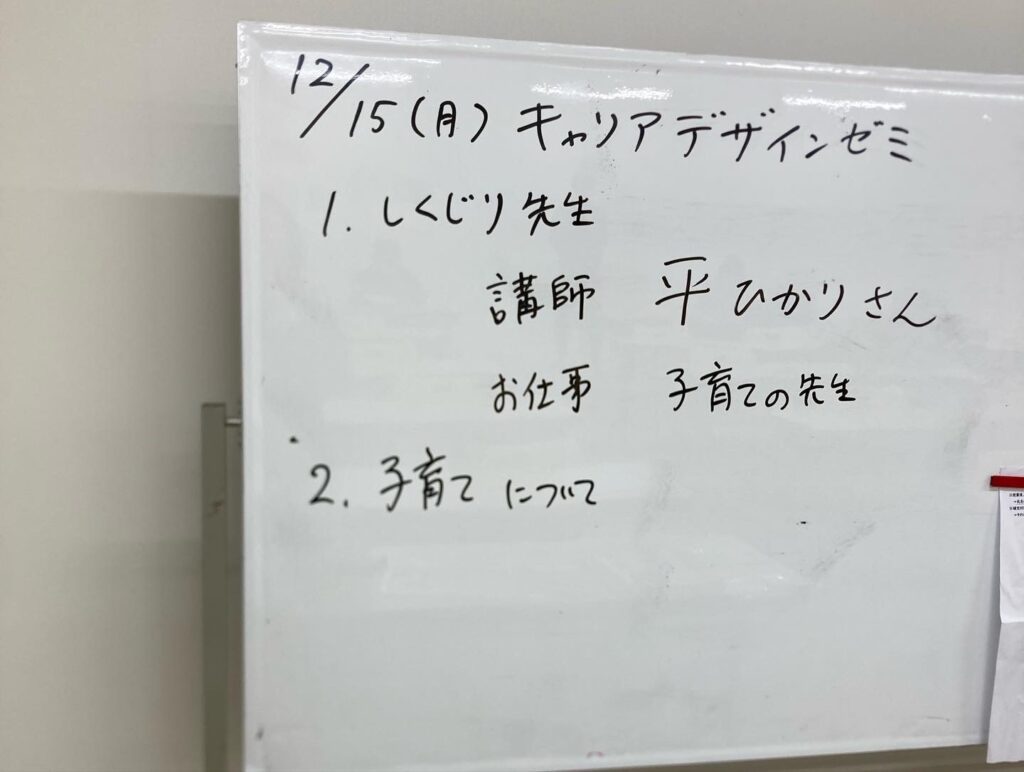 12/15(月) キャリアデザインゼミ
1. しくじり先生
講師 平ひかりさん
お仕事 子育ての先生
2. 子育て について